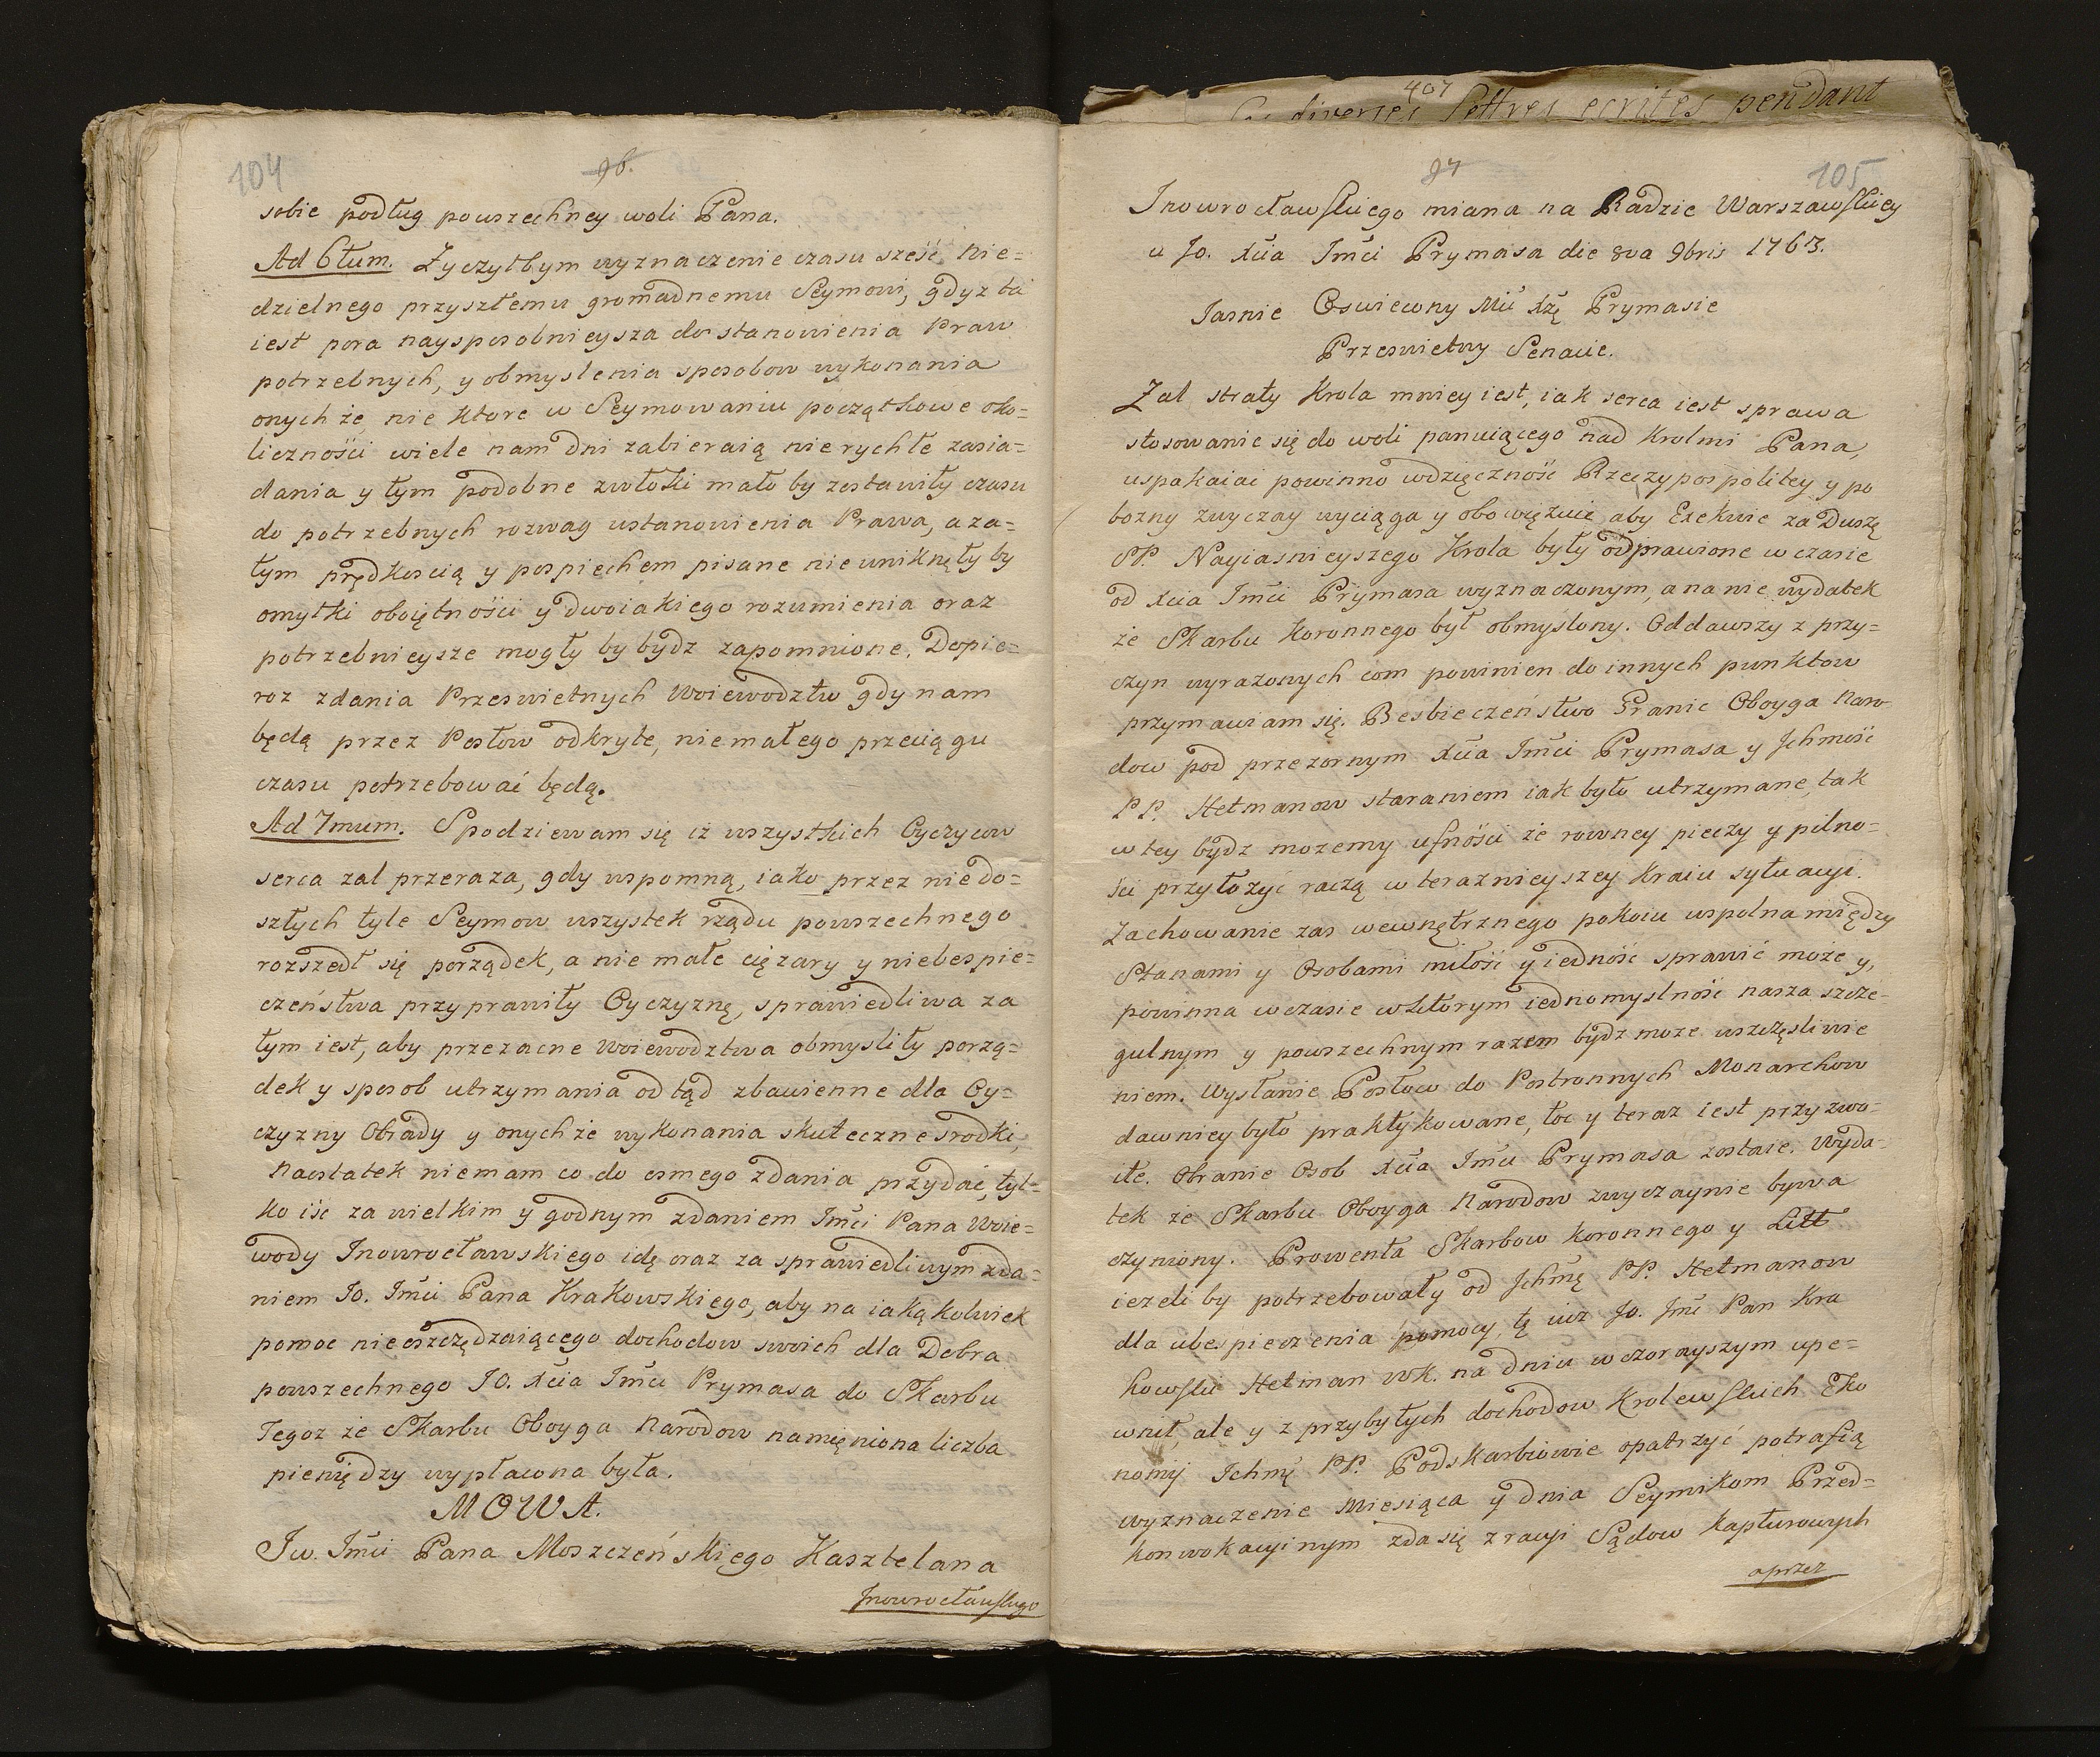 104
96.
sobie podług powszechney woli Pana.
Ad 6tum. Zyczyłbym wyznaczenie czasu sześć Nie=
dzielnego przyszłemu gromadnemu Seymowi, gdyz ta
iest pora naysposobnieysza do stanowienia Praw
potrzebnych, y obmyslenia sposobow wykonania
onych że, nie ktore w Seymowaniu początkowe oko=
liczności wiele nam dni zabieraią nie rychłe zasia=
dania y tym podobne zwłoki mało by zostawiły czasu
do potrzebnych rozwag ustanowienia Prawa, a za=
tym prędkoscią y pospiechem pisane nie uniknęły by
omyłki oboiętności y dwoiakiego rozumienia oraz
potrzebnieysze mogły by bydz zapomnione. Dopie=
roz zdania Przeswietnych Woiewodztw gdy nam
będą przez Posłow odkryte, nie małego przeciągu
czasu potrzebować będą.
Ad 7mum. Spodziewam się iż wszystkich Oyczycow
serca zal przeraza, gdy wspomną, iako przez nie do=
szłych tyle Seymow wszystek rządu powszechnego
rozszedł się porządek, a nie małe cięzary y niebespie=
czeństwa przyprawiły Oyczyznę, sprawiedliwa za
tym iest, aby przezacne Woiewodztwa obmysliły porzą=
dek y sposob utrzymania od tąd zbawienne dla Oy=
czyzny Obrady y onych że wykonania skuteczne srodki,
Naostatek niemam co do osmego zdania przydać, tyl=
ko iść za wielkim y godnym zdaniem Jmći Pana Woie=
wody Inowrocławskiego idę oraz za sprawiedliwym zda=
niem Jo. Jmći Pana Krakowskiego, aby na iaką kolwiek
pomoc nieoszczędzaiącego dochodow swoich dla Dobra
powszechnego JO. Xcia Jmći Prymasa do Skarbu
Tegoz że Skarbu Oboyga Narodow namięniona liczba
pieniędzy wypłacona była.
MOWA.
Jw. Jmći Pana Moszczeńskiego Kasztelana
Inowrocławskiego
407
diverses lettres ecrites pendant
97
105
Inowrocławskiego miana na Radzie Warszawskiey
u Jo. Xcia Jmći Prymasa die 8va 9bris 1763.
Iasnie Oswiecony Mci Xżę Prymasie
Przeswietny Senacie.
Zal straty Krola mniey iest, iak serca iest sprawa
stosowanie się do woli panuiącego nad Krolmi Pana,
uspakaiać powinno wdzięczność Rzeczypospolitey y po
bozny zwyczay wyciąga y obowięzuie, aby Exekwie za Duszę
SP. Nayiasnieyszego Krola były odprawione w czasie
od Xcia Jmći Prymasa wyznaczonym, a na nie wydatek
że Skarbu Koronnego był obmyślony. Oddawszy z przy=
czyn wyrazonych com powinien do innych punktow
przymawiam się. Besbieczeństwo Granic Oboyga Naro
dow pod przezornym Xcia Jmći Prymasa y Jchmość
PP. Hetmanow staraniem iak było utrzymane, tak
w tey bydz mozemy ufności że rowney pieczy y pilno=
ści przyłożyć raczą w teraznieyszey Kraiu sytuacyi.
Zachowanie zas wewnętrznego pokoiu wspolna między
Stanami y Osobami miłość y iedność sprawić może y,
powinna w czasie w ktorym iednomyslność nasza szcze=
gulnym y powszechnym razem bydz moze uszczęsliwie
niem. Wysłanie Posłow do Postronnych Monarchow
dawniey było praktykowane, toć y teraz iest przyzwo=
ite. Obranie Osob Xcia Jmći Prymasa zostaie. Wyda=
tek ze Skarbu Oboyga Narodow zwyczaynie bywa
czyniony. Prowenta Skarbow Koronnego y Litt
iezeli by potrzebowały od Jchmę PP. Hetmanow
dla ubespieczenia pomocy, tę iuż Jo. Jmć Pan Kra
kowski Hetman WK. na dniu wczorayszym upe=
wnił, ale y z przybyłych dochodow Krolewskich Eko
nomij Jchmę PP. Podskarbiowie opatrzyć potrafią
wyznaczenie Miesiąca y dnia Seymikom Przed=
konwokacyinym zda się z racyi Sądow Kapturowych
aprzez